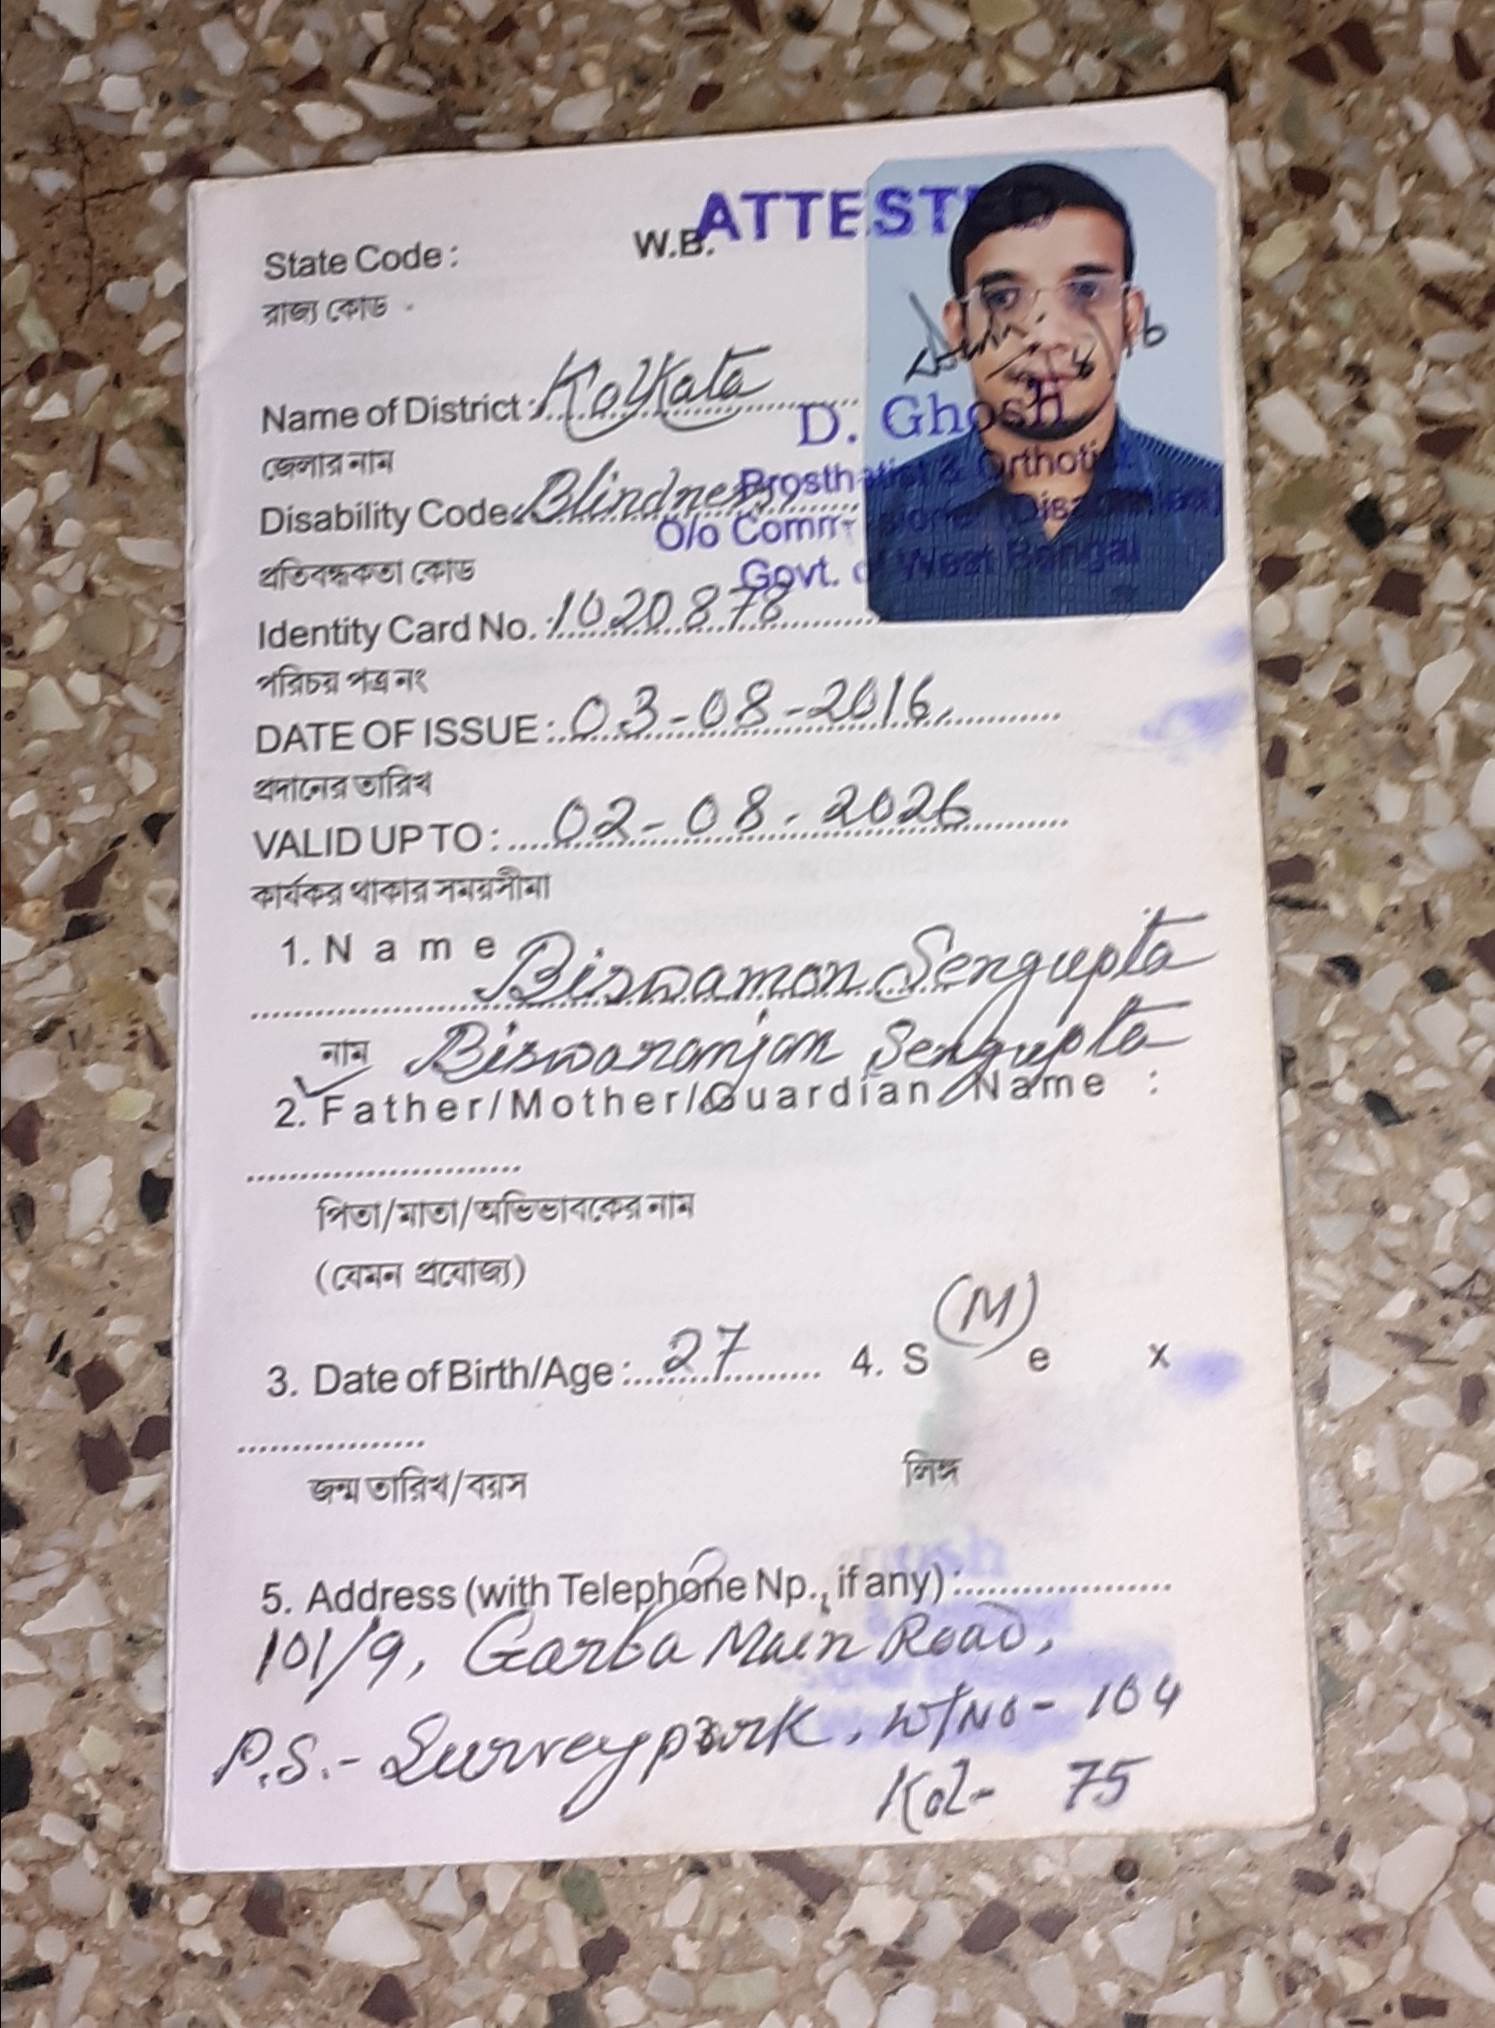 ATTESTED
State Code : W.B.
রাজ্য কোড
Name of District : Kolkata
জেলার নাম
D. Ghosh
Disability Code Blindness
Prosthatist & Orthotist
O/o Commissioner (Disabilities)
প্রতিবন্ধকতা কোড
Govt. of West Bengal
Identity Card No. 1020878
পরিচয় পত্র নং
DATE OF ISSUE : 03-08-2016
প্রদানের তারিখ
VALID UP TO : 02-08-2026
কার্যকর থাকার সময়সীমা
1. Name Biswamon Sengupta
নাম Biswaranjan Sengupta
2. Father/Mother/Guardian Name :
পিতা/মাতা/অভিভাবকের নাম
(যেমন প্রযোজ্য)
3. Date of Birth/Age : 27 4. Sex (M)
জন্ম তারিখ/বয়স লিঙ্গ
5. Address (with Telephone No., if any) :
101/9, Garfa Main Road,
P.S.- Surveypark, W/No - 104
Kol- 75